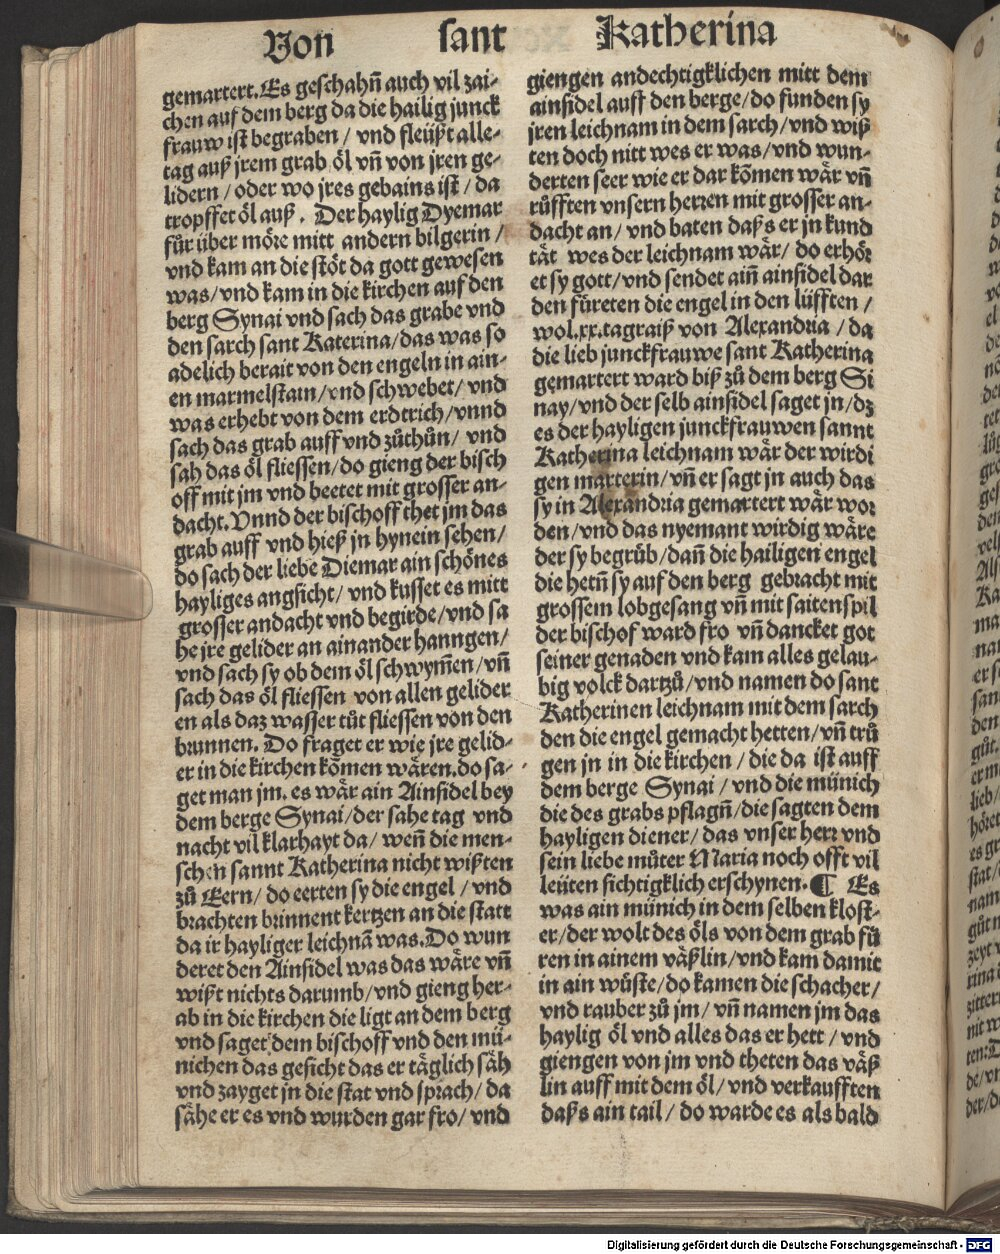 Von sant Katherina
gemartert. Es geschahñ auch vil zai-
chen auf dem berg da die hailig junck
frauw ist begraben / vnd fleüßt alle-
tag auß jrem grab öl vñ von jren ge-
lidern / oder wo jres gebains ist / da
tropffet öl auß. Der haylig Dyemar
fůr über möre mitt andern bilgerin /
vnd kam an die stöt da gott gewesen
was / vnd kam in die kirchen auf den
berg Synai vnd sach das grabe vnd
den sarch sant Katerina / das was so
adelich berait von den engeln in ain-
en marmelstain / vnd schwebet / vnd
was erhebt von dem erdtrich / vnnd
sach das grab auff vnd zůthůn / vnd
sah das öl fliessen / do gieng der bisch
off mit jm vnd beetet mit grosser an-
dacht. Vnnd der bischoff thet jm das
grab auff vnd hieß jn hynein sehen /
do sach der liebe Diemar ain schönes
hayliges angsicht / vnd kusset es mitt
grosser andacht vnd begirde / vnd sa
he jre gelider an ainander hanngen /
vnd sach sy ob dem öl schwym̃en / vñ
sach das öl fliessen von allen gelider
en als daz wasser tůt fliessen von den
brunnen. Do fraget er wie jre gelid-
er in die kirchen kõmen wären. do sa-
get man jm. es wär ain Ainsidel bey
dem berge Synai / der sahe tag vnd
nacht vil klarhayt da / weñ die men-
schen sannt Katherina nicht wißten
zů Eern / do eerten sy die engel / vnd
brachten brinnent kertzen an die statt
da ir hayliger leichnã was. Do wun
deret den Ainsidel was das wäre vñ
wißt nichts darumb / vnd gieng her-
ab in die kirchen die ligt an dem berg
vnd saget dem bischoff vnd den mü-
nichen das gesicht das er täglich säh
vnd zayget jn die stat vnd sprach / da
sähe er es vnd wurden gar fro / vnd
giengen andechtigklichen mitt dem
ainsidel auff den berge / do funden sy
jren leichnam in dem sarch / vnd wiß
ten doch nitt wes er was / vnd wun-
derten seer wie er dar kõmen wär vñ
růfften vnsern herren mit grosser an-
dacht an / vnd baten daß er jn kund
tät wes der leichnam wär / do erhör
et sy gott / vnd sendet aiñ ainsidel dar
den füreten die engel in den lüfften /
wol .xx. tagraiß von Alexandria / da
die lieb junckfrauwe sant Katherina
gemartert ward biß zů dem berg Si
nay / vnd der selb ainsidel saget jn / dz
es der hayligen junckfrauwen sannt
Katherina leichnam wär der wirdi
gen marterin / vñ er sagt jn auch das
sy in Alexandria gemartert wär wor
den / vnd das nyemant wirdig wäre
der sy begrůb / dañ die hailigen engel
die hetñ sy auf den berg gebracht mit
grossem lobgesang vñ mit saitenspil
der bischof ward fro vñ dancket got
seiner genaden vnd kam alles gelau-
big volck dartzů / vnd namen do sant
Katherinen leichnam mit dem sarch
den die engel gemacht hetten / vñ trů
gen jn in die kirchen / die da ist auff
dem berge Synai / vnd die münich
die des grabs pflagñ / die sagten dem
hayligen diener / das vnser herr vnd
sein liebe můter Maria noch offt vil
leüten sichtigklich erschynen. ¶ Es
was ain münich in dem selben klost-
er / der wolt des öls von dem grab fü
ren in ainem väßlin / vnd kam damit
in ain wůste / do kamen die schacher /
vnd rauber zů jm / vñ namen jm das
haylig öl vnd alles das er hett / vnd
giengen von jm vnd theten das väß
lin auff mit dem öl / vnd verkaufften
daß ain tail / do warde es als bald
Digitalisierung gefördert durch die Deutsche Forschungsgemeinschaft - DFG